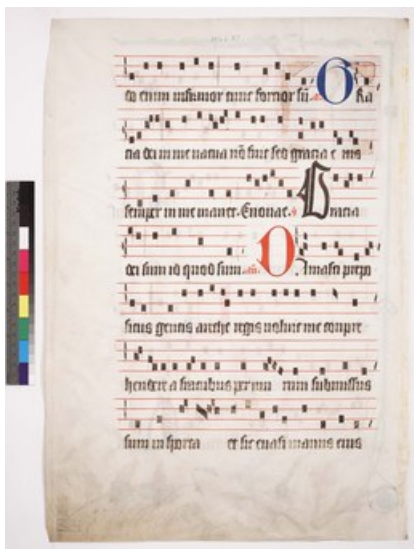 do enim infirmor tunc fortior sū. GRa
cia dei in me uacua nō fuit sed gracia e ius
semper in me manet. Euouae. Gracia
dei sum id quod sum. añ. Damasci prepo
situs gentis arethe regis uoluit me conpre
hendere a fratribus per mu rum submissus
sum in sporta et sic euasi manus eius